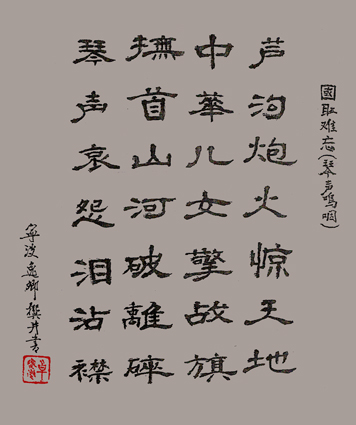 國耻难忘(琴声呜咽)
芦沟炮火惊天地
中華儿女擎战旗
撫首山河破離碎
琴声哀怨泪沾襟
寧波逸卿撰并書